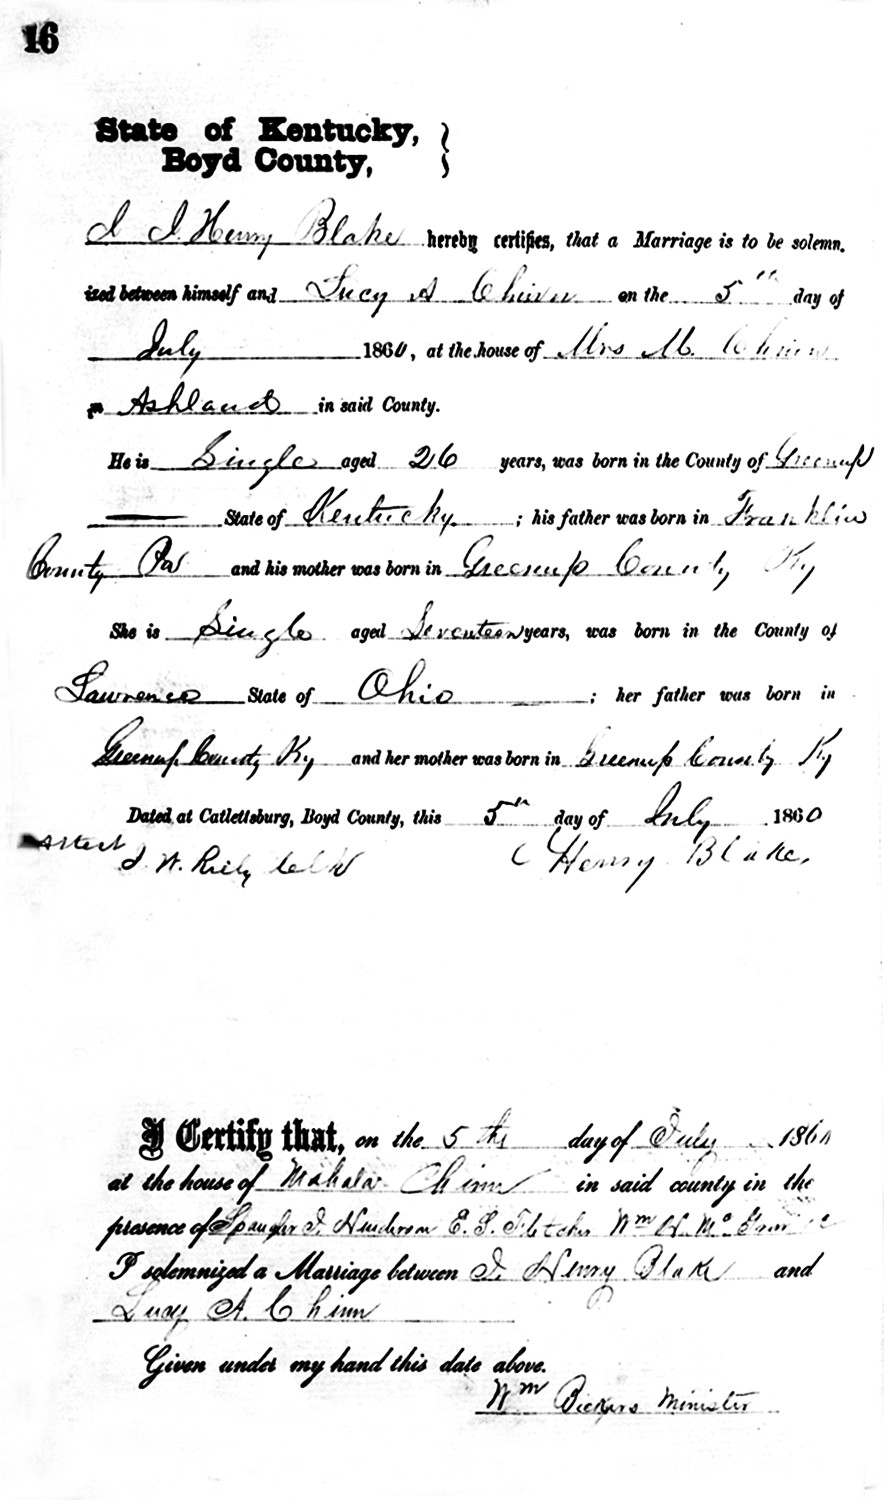 16
State of Kentucky,
Boyd County,
I J. Henry Blake hereby certifies, that a Marriage is to be solemn.
ized between himself and Lucy A Chinn on the 5th day of
July 1860, at the house of Mrs M. Chinn
in Ashland in said County.
He is Single aged 26 years, was born in the County of Greenup
State of Kentucky ; his father was born in Franklin
County Pa and his mother was born in Greenup County Ky
She is Single aged Seventeen years, was born in the County of
Lawrence State of Ohio ; her father was born in
Greenup County Ky and her mother was born in Greenup County Ky
Dated at Catlettsburg, Boyd County, this 5th day of July 1860
Attest J Henry Blake.
J. W. Riely
I Certify that, on the 5th day of July 1860
at the house of Mahala Chinn in said county in the
presence of J. Henderson E. S. Fletcher Wm H. Mc
I solemnized a Marriage between J. Henry Blake and
Lucy A. Chinn
Given under my hand this date above.
Wm Bickers Minister